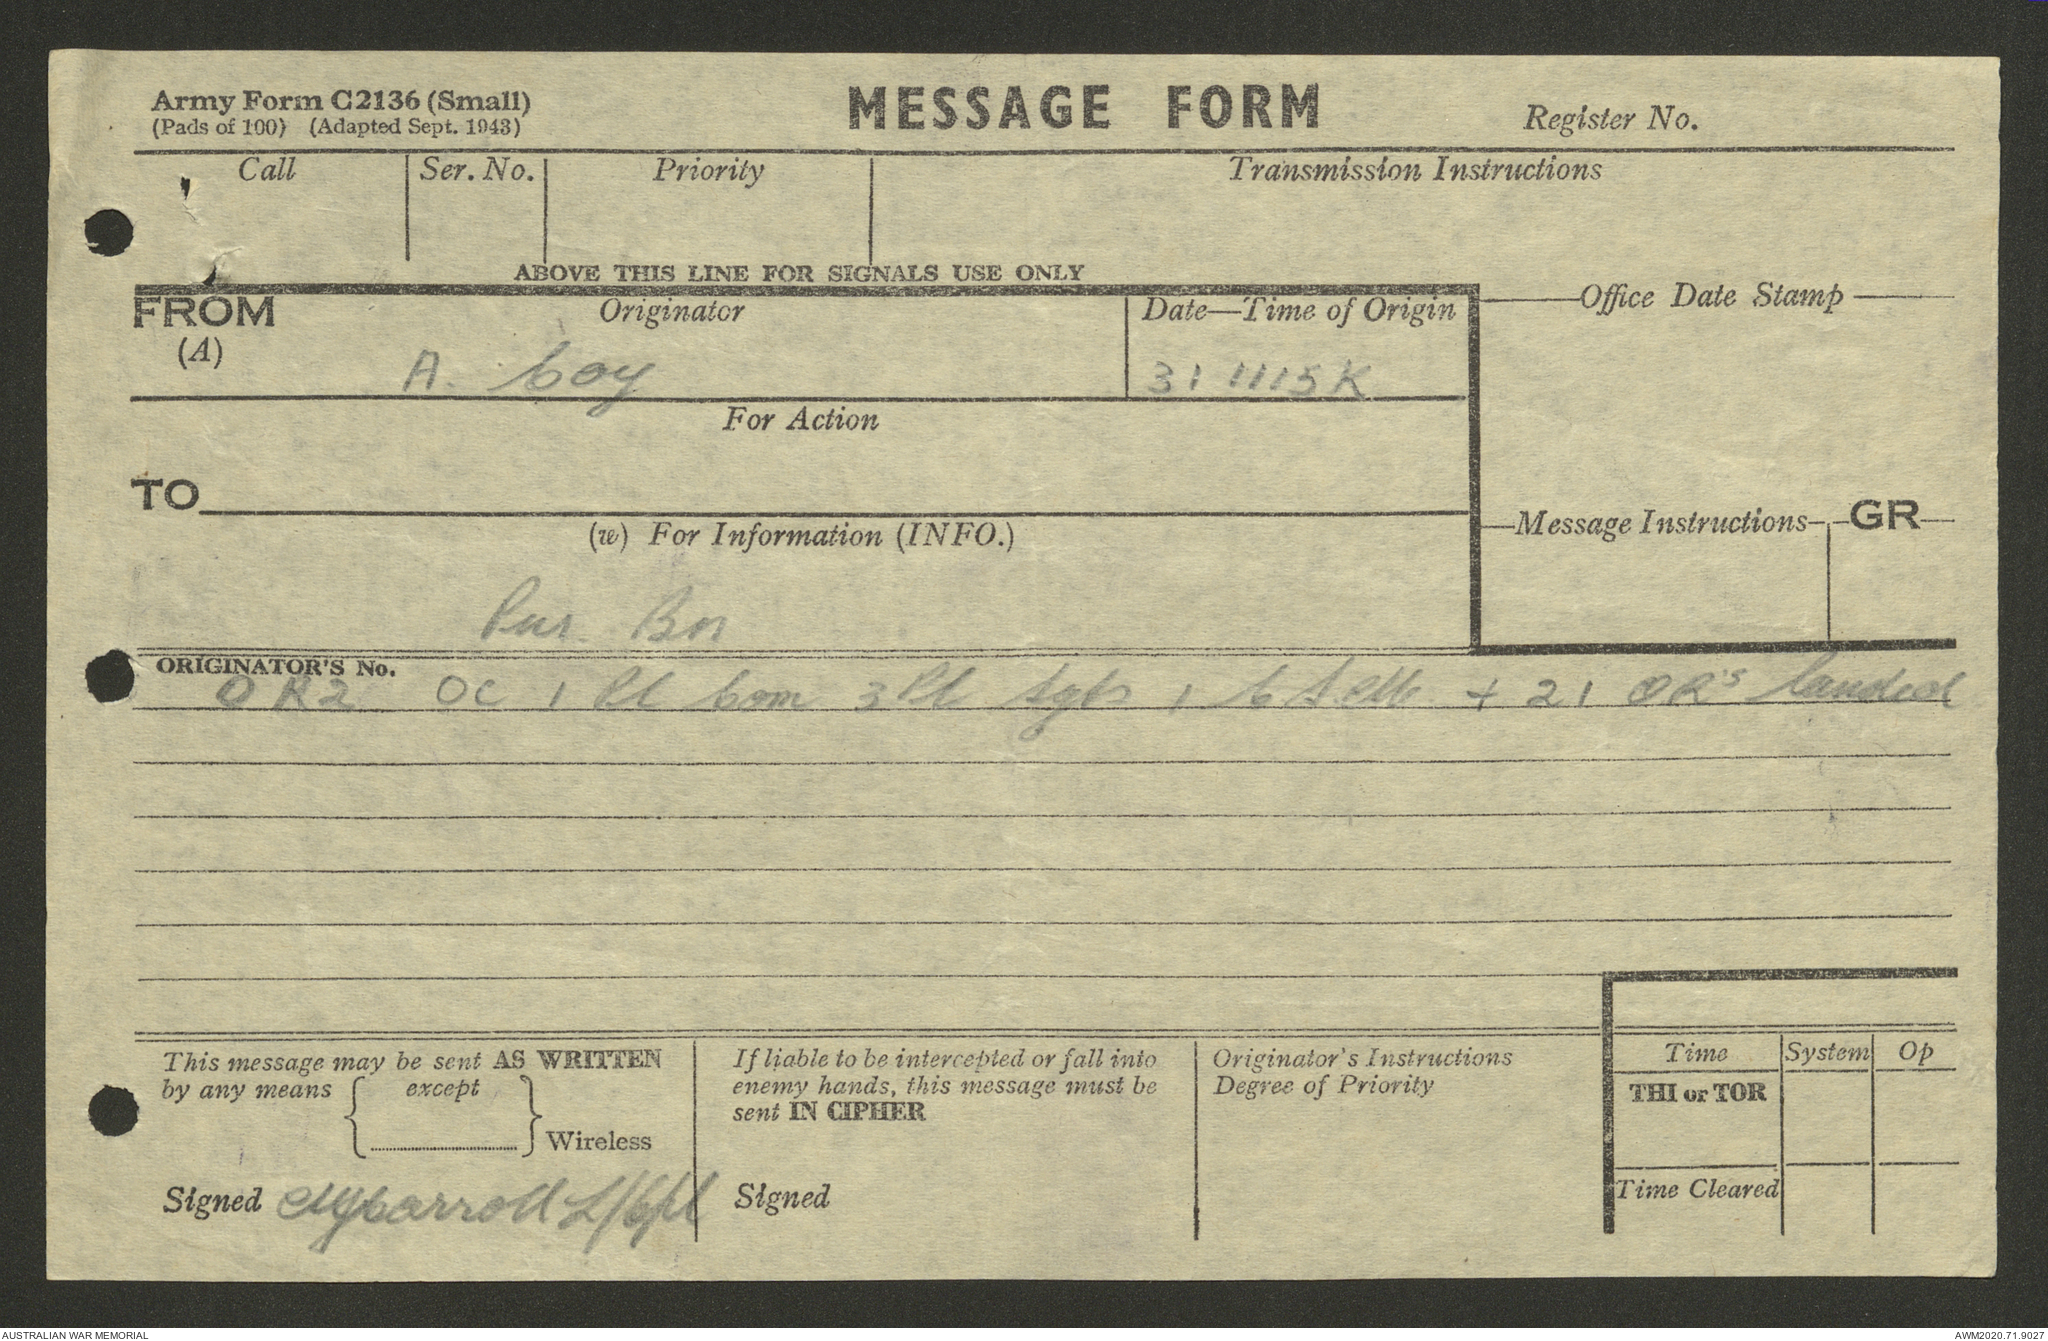 Army Form C2136 (Small)
(Pads of 100) (Adapted Sept. 1943)
MESSAGE FORM
Register No.
Call
Ser. No.
Priority
Transmission Instructions
ABOVE THIS LINE FOR SIGNALS USE ONLY
FROM
(A)
Originator
A. Coy
Date—Time of Origin
31 1115K
Office Date Stamp
For Action
TO
(w) For Information (INFO.)
Message Instructions
GR
Bn
ORIGINATOR'S No.
OR2 OC 1 Pl Com 3 Pl Sgts 1 + 21 OR's landed
This message may be sent AS WRITTEN
by any means except
Wireless
Signed L/Cpl
If liable to be intercepted or fall into
enemy hands, this message must be
sent IN CIPHER
Signed
Originator's Instructions
Degree of Priority
Time
System
Op
THI or TOR
Time Cleared
AUSTRALIAN WAR MEMORIAL
AWM2020.71.9027